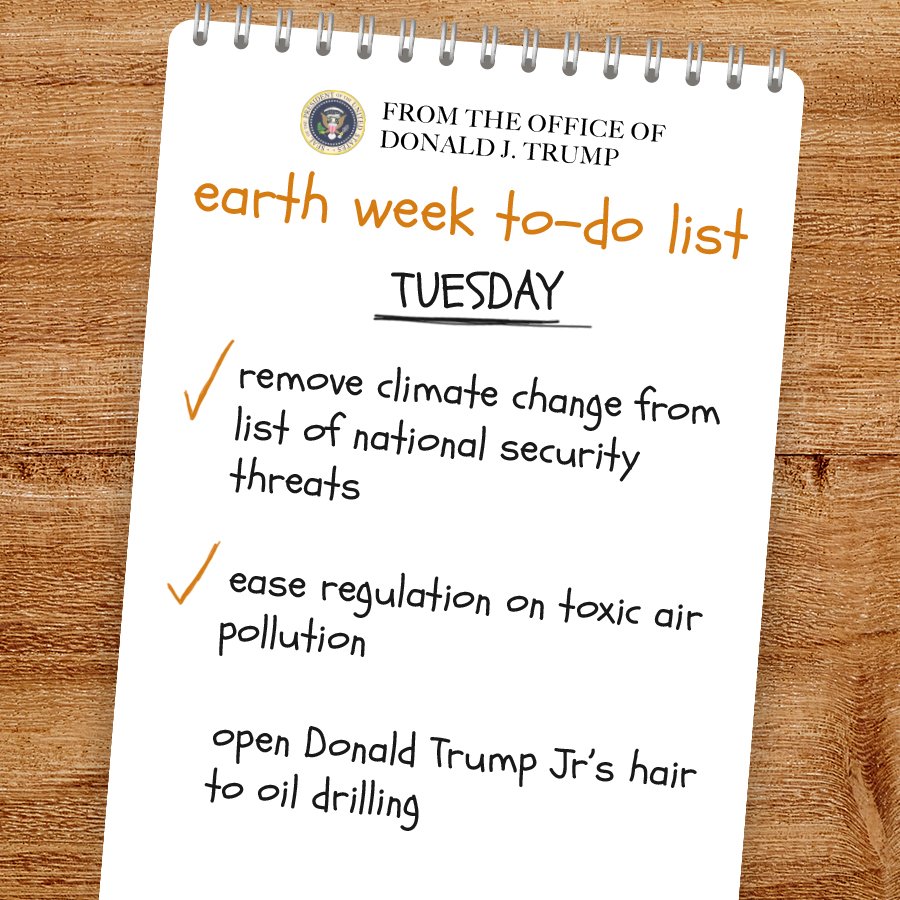 FROM THE OFFICE OF
DONALD J. TRUMP
earth week to-do list
TUESDAY
remove climate change from
list of national security
threats
ease regulation on toxic air
pollution
open Donald Trump Jr's hair
to oil drilling